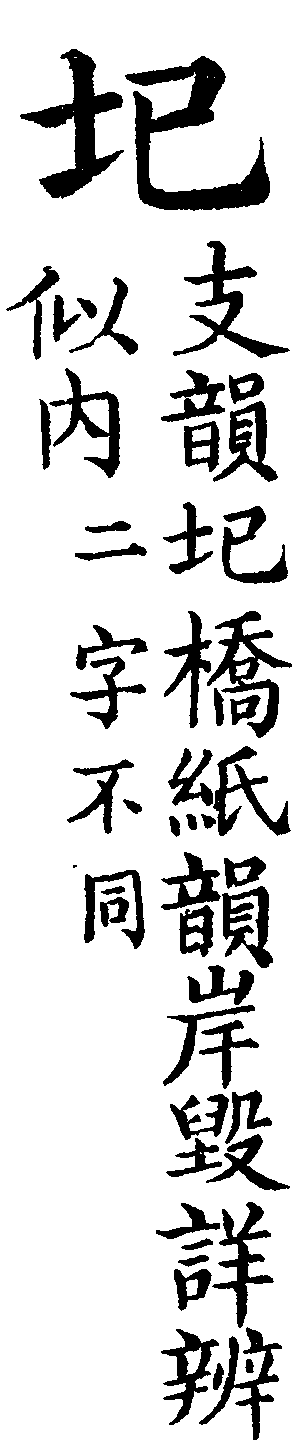 圯
支韻圯橋紙韻岸毀詳辨
似内二字不同